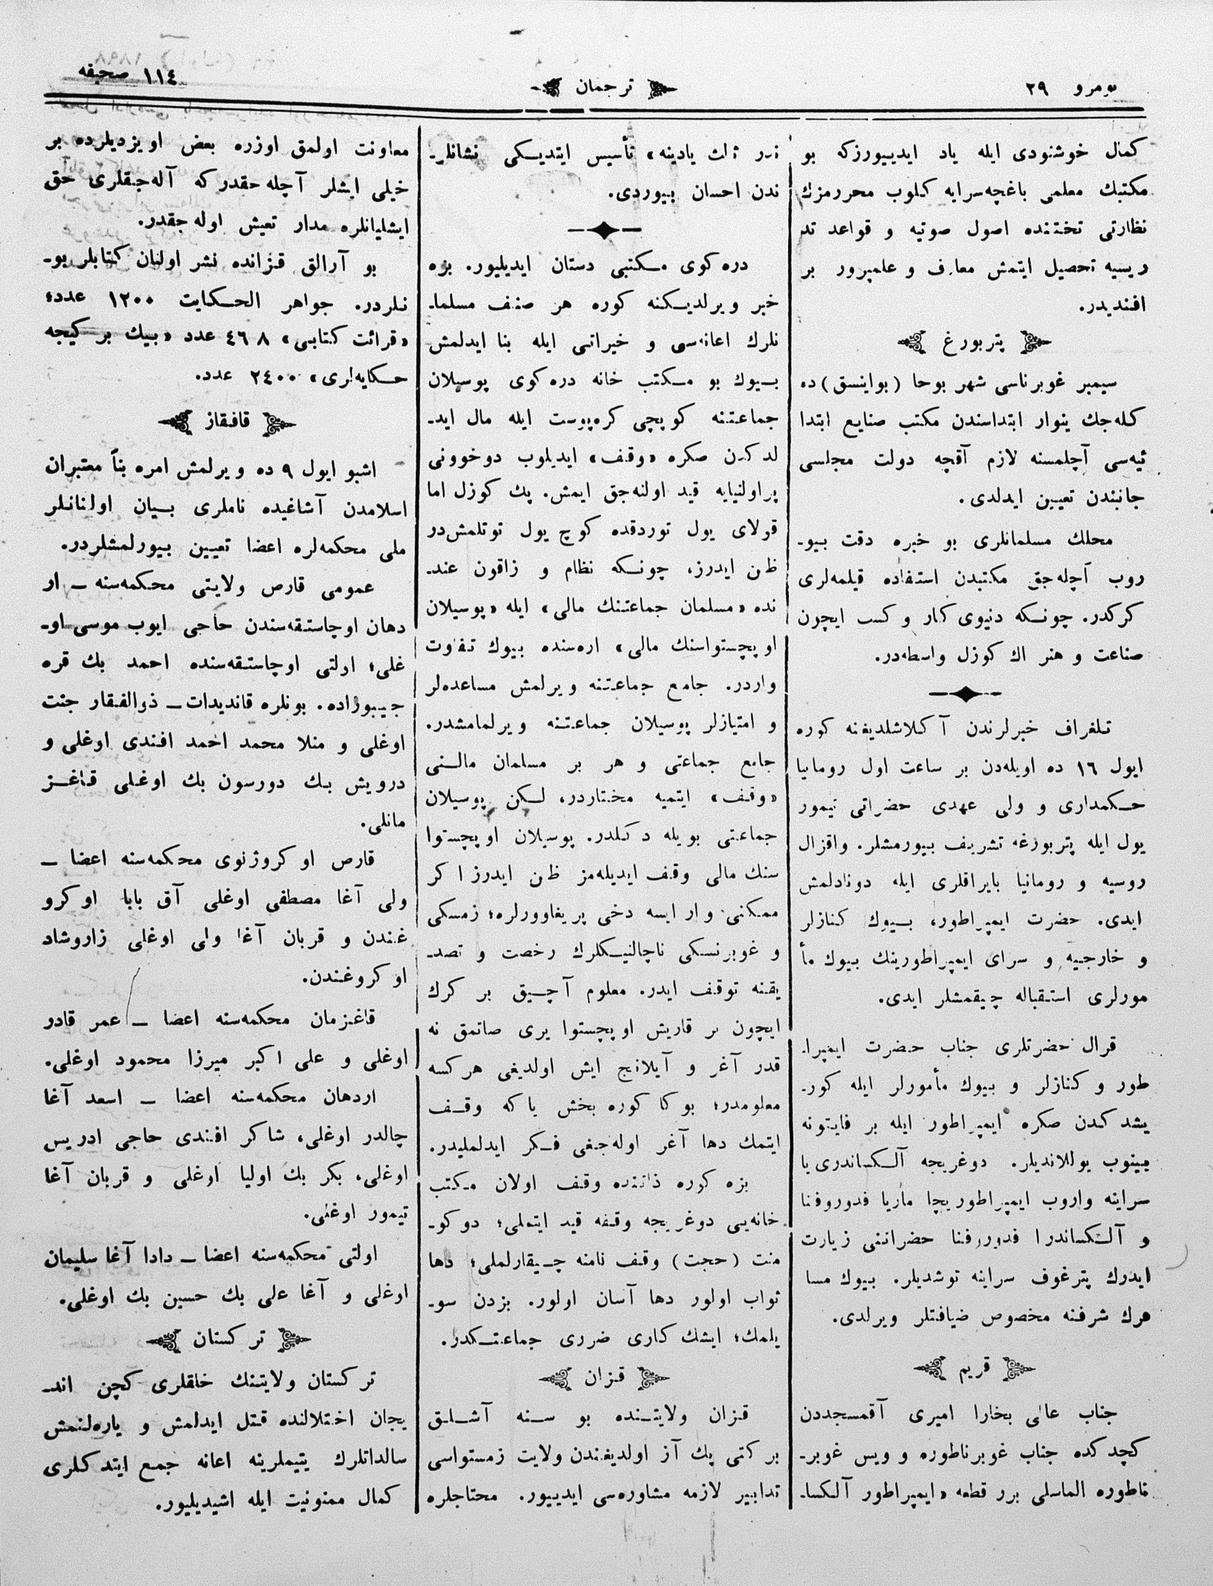 نومرو ٢٩
ترجمان
١١٤ صحيفه
كمال خوشنودى ايله ياد ايدييورزكه بو
مكتبك معلمى باغچه‌سرايه كلوب محررمزك
نظارتى تختنده اصول صوتيه و قواعد تد
ريسيه تحصيل ايتمش معارف و علمپرور بر
افنديدر.
پتربورغ
سيمبر غوبرناسى شهر بوحا (بواينسق) ده
كله‌جك ينوار ابتداسندن مكتب صنايع ابتدا
ئيه‌سى آچلمسنه لازم آقچه دولت مجلسى
جانبندن تعيين ايدلدى.
محلك مسلمانلرى بو خبره دقت بيو-
روب آچله‌جق مكتبدن استفاده قيلمه‌لرى
كركدر. چونكه دنيوى كار و كسب ايچون
صناعت و هنر اك كوزل واسطه‌در.
تلغراف خبرلرندن آكلاشلديغنه كوره
ايول ١٦ ده اويله‌دن بر ساعت اول رومانيا
حكمدارى و ولى عهدى حضراتى تيمور
يول ايله پتربورغه تشريف بيورمشلر. واقزال
روسيه و رومانيا بايراقلرى ايله دونادلمش
ايدى. حضرت ايمپراطور، بيوك كنازلر
و خارجيه و سراى ايمپراطورينك بيوك مأ
مورلرى استقباله چيقمشلر ايدى.
قرال حضرتلرى جناب حضرت ايمپرا-
طور و كنازلر و بيوك مأمورلر ايله كور-
يشدكدن صكره ايمپراطور ايله بر فايتونه
بينوب يوللانديلر. دوغريجه آلكساندرى يا
سراينه واروب ايمپراطوريچا ماريا فدوروفنا
و آلكساندرا فدوروفنا حضراتنى زيارت
ايدرك پترغوف سراينه توشديلر. بيوك مسا
فرك شرفنه مخصوص ضيافتلر ويرلدى.
قريم
جناب عالى بخارا اميرى آقمسجددن
كچدكده جناب غوبرناطوره و ويس غوبر-
ناطوره الماسلى برر قطعه «ايمپراطور آلكسا-
ندر ثالث يادينه» تأسيس ايتديكى نشانلر-
ندن احسان بيوردى.
دره‌كوى مكتبى دستان ايديليور. بزه
خبر ويرلديكنه كوره هر صنف مسلما-
نلرك اعانه‌سى و خيراتى ايله بنا ايدلمش
بيوك بو مكتب خانه دره‌كوى پوسيلان
جماعتنه كوپچى كره‌پوست ايله مال ايد-
لدكدن صكره «وقف» ايديلوب دوخوونى
پراولنيايه قيد اولنه‌جق ايمش. پك كوزل اما
قولاى يول توردقده كوچ يول توتلمش‌در
ظن ايدرز، چونكه نظام و زاقون عند-
نده «مسلمان جماعتنك مالى» ايله «پوسيلان
اوپچستواسنك مالى» اره‌سنده بيوك تفاوت
واردر. جامع جماعتنه ويرلمش مساعده‌لر
و امتيازلر پوسيلان جماعتنه ويرلمامشدر.
جامع جماعتى و هر بر مسلمان مالنى
«وقف» ايتميه مختاردر، لكن پوسيلان
جماعتى بويله دكلدر. پوسيلان اوپچستوا
سنك مالى وقف ايديله‌مز ظن ايدرز اكر
ممكنى وار ايسه دخى پريغاوورلره؛ زمسكى
و غوبرنسكى ناچالنيكلرك رخصت و تصد-
يقنه توقف ايدر. معلوم آچيق بر كرك
ايچون بر قاريش اوپچستوا يرى صاتمق نه
قدر آغر و آيلانج ايش اولديغى هركسه
معلومدر؛ بوكا كوره بخش ياكه وقف
ايتمك دها آغر اوله‌جغى فكر ايدلمليدر.
بزه كوره ذاتنده وقف اولان مكتب
خانه‌يى دوغريجه وقفه قيد ايتملى؛ دوكو-
منت (حجت) وقف نامنه چيقارلملى؛ دها
ثواب اولور دها آسان اولور. بزدن سو-
يلمك؛ ايشك كارى ضررى جماعتكدر.
قزان
قزان ولايتنده بو سنه آشلق
بركتى پك آز اولديغندن ولايت زمستواسى
تدابير لازمه مشاوره‌سى ايدييور. محتاجلره
معاونت اولمق اوزره بعض اويزديلرده بر
خيلى ايشلر آچله‌حقدركه آله‌جقلرى حق
ايشليانلره مدار تعيش اوله‌جقدر.
بو آرالق قزانده نشر اولنان كتابلر بو-
نلردر. جواهر الحكايت ١٢٠٠ عدد؛
«قرائت كتابى» ٤٦٨ عدد «بيك بر كيجه
حكايه‌لرى» ٢٤٠٠ عدد.
قافقاز
اشبو ايول ٩ ده ويرلمش امره بناً معتبران
اسلامدن آشاغيده ناملرى بيان اولنانلر
ملى محكمه‌لره اعضا تعيين بيورلمشلردر.
عمومى قارص ولايتى محكمه‌سنه – ار
دهان اوچاستقه‌سندن حاجى ايوب موسى او-
غلى؛ اولتى اوچاستقه‌سنده احمد بك قره
جيبوزاده. بونلره قانديدات – ذوالفقار جنت
اوغلى و منلا محمد احمد افندى اوغلى و
درويش بك دورسون بك اوغلى قاغز
مانلى.
قارص اوكروژنوى محكمه‌سنه اعضا –
ولى آغا مصطفى اوغلى آق بابا اوكرو
غندن و قربان آغا ولى اوغلى زاروشاد
اوكروغندن.
قاغزمان محكمه‌سنه اعضا – عمر قادر
اوغلى و على اكبر ميرزا محمود اوغلى.
اردهان محكمه‌سنه اعضا – اسعد آغا
چالدر اوغلى، شاكر افندى حاجى ادريس
اوغلى، بكر بك اوليا اوغلى و قربان آغا
تيمور اوغلى.
اولتى محكمه‌سنه اعضا – دادا آغا سليمان
اوغلى و آغا على بك حسين بك اوغلى.
تركستان
تركستان ولايتنك خلقلرى كچن اند-
يجان اختلالنده قتل ايدلمش و ياره‌لنمش
سالداتلرك يتيملرينه اعانه جمع ايتدكلرى
كمال ممنونيت ايله اشيديليور.